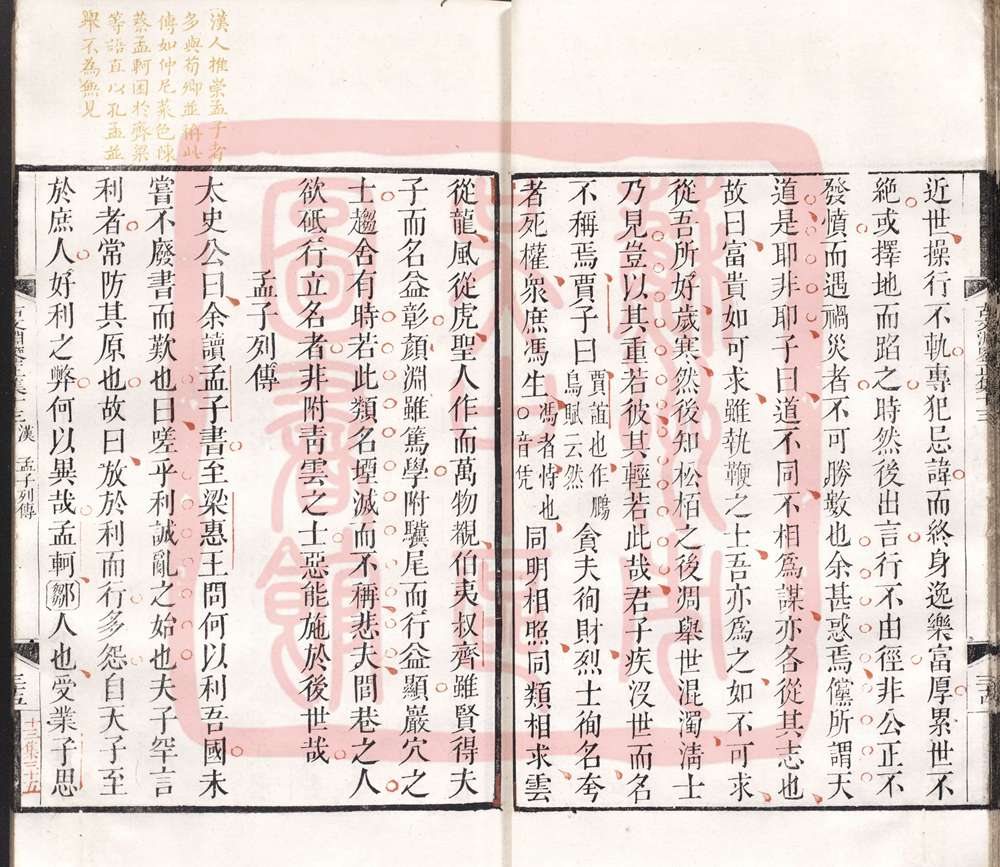 近世操行不軌專犯忌諱而終身逸樂富厚累世不
絶或擇地而蹈之時然後出言行不由徑非公正不
發憤而遇禍災者不可勝數也余甚惑焉儻所謂天
道是耶非耶子曰道不同不相爲謀亦各從其志也
故曰富貴如可求雖執鞭之士吾亦爲之如不可求
從吾所好歲寒然後知松栢之後凋舉世混濁淸士
乃見豈以其重若彼其輕若此哉君子疾沒世而名
不稱焉賈子曰賈誼也作鵩鳥賦云然貪夫徇財烈士徇名夸
者死權衆庶馮生馮者恃也○音凭同明相照同類相求雲
從龍風從虎聖人作而萬物覩伯夷叔齊雖賢得夫
子而名益彰顏淵雖篤學附驥尾而行益顯巖穴之
士趨舍有時若此類名堙滅而不稱悲夫閭巷之人
欲砥行立名者非附靑雲之士惡能施於後世哉
孟子列傳
太史公曰余讀孟子書至梁惠王問何以利吾國未
嘗不廢書而歎也曰嗟乎利誠亂之始也夫子罕言
利者常防其原也故曰放於利而行多怨自天子至
於庶人好利之弊何以異哉孟軻鄒人也受業子思
漢人推崇孟子者
多與荀卿並稱此
傳如仲尼菜色陳
蔡孟軻困於齊梁
等語直以孔孟並
舉不為無見
漢 孟子列傳
三五
十三集三十五